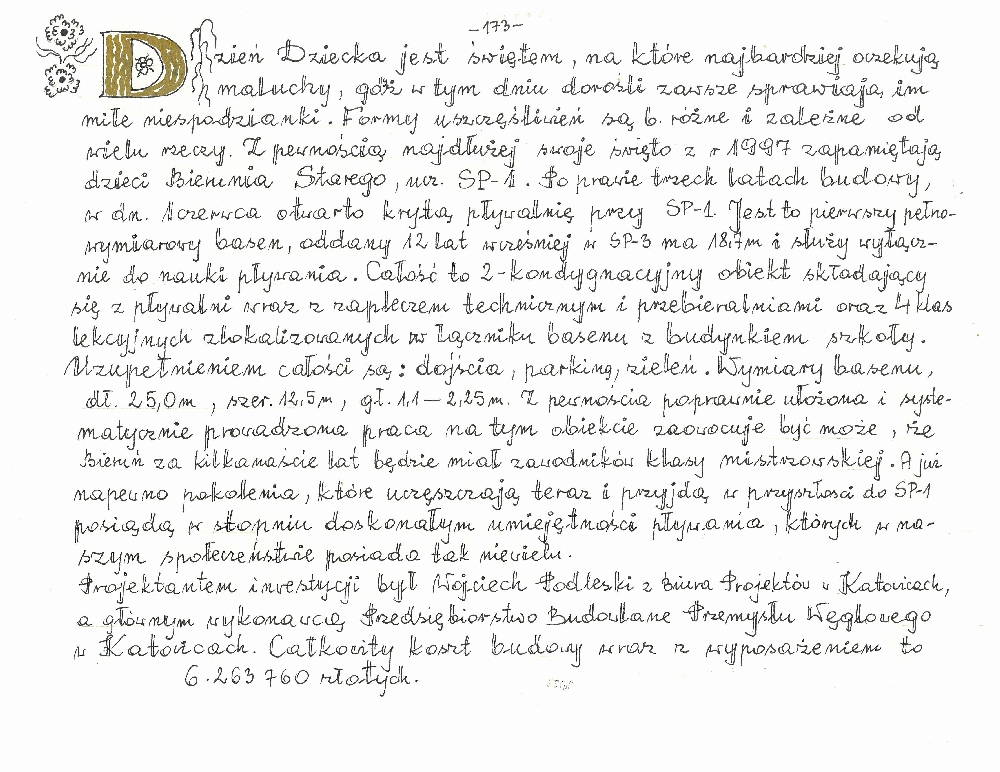 -173-
Dzień Dziecka jest świętem, na które najbardziej oczekują
maluchy, gdż w tym dniu dorośli zawsze sprawiają im
miłe niespodzianki. Formy uszczęśliwień są b. różne i zależne od
wielu rzeczy. Z pewnością najdłużej swoje święto z r 1997 zapamiętają
dzieci Bierunia Starego, ucz. SP-1. Po prawie trzech latach budowy,
w dn. 1 czerwca otwarto krytą pływalnię przy SP-1. Jest to pierwszy pełno-
wymiarowy basen, oddany 12 lat wcześniej w SP-3 ma 18,7m i służy wyłącz-
nie do nauki pływania. Całość to 2-kondygnacyjny obiekt składający
się z pływalni wraz z zapleczem technicznym i przebieralniami oraz 4 klas
lekcyjnych zlokalizowanych w łączniku basenu z budynkiem szkoły.
Uzupełnieniem całości są: dojścia, parking, zieleń. Wymiary basenu,
dł. 25,0m, szer. 12,5m, gł. 1,1 - 2,25m. Z pewnościa poprawnie ułożona i syste-
matycznie prowadzona praca na tym obiekcie zaowocuje być może, że
Bieruń za kilkanaście lat będzie miał zawodników klasy mistrzowskiej. A już
napewno pokolenia, które uczęszczają teraz i przyjdą w przyszłości do SP-1
posiądą w stopniu doskonałym umiejętności pływania, których w na-
szym społeczeństwie posiada tak niewielu.
Projektantem inwestycji był Wojciech Podleski z Biura Projektów w Katowicach,
a głównym wykonawcą Przedsiębiorstwo Budowlane Przemysłu Węglowego
w Katowicach. Całkowity koszt budowy wraz z wyposażeniem to
6.263 760 złotych.